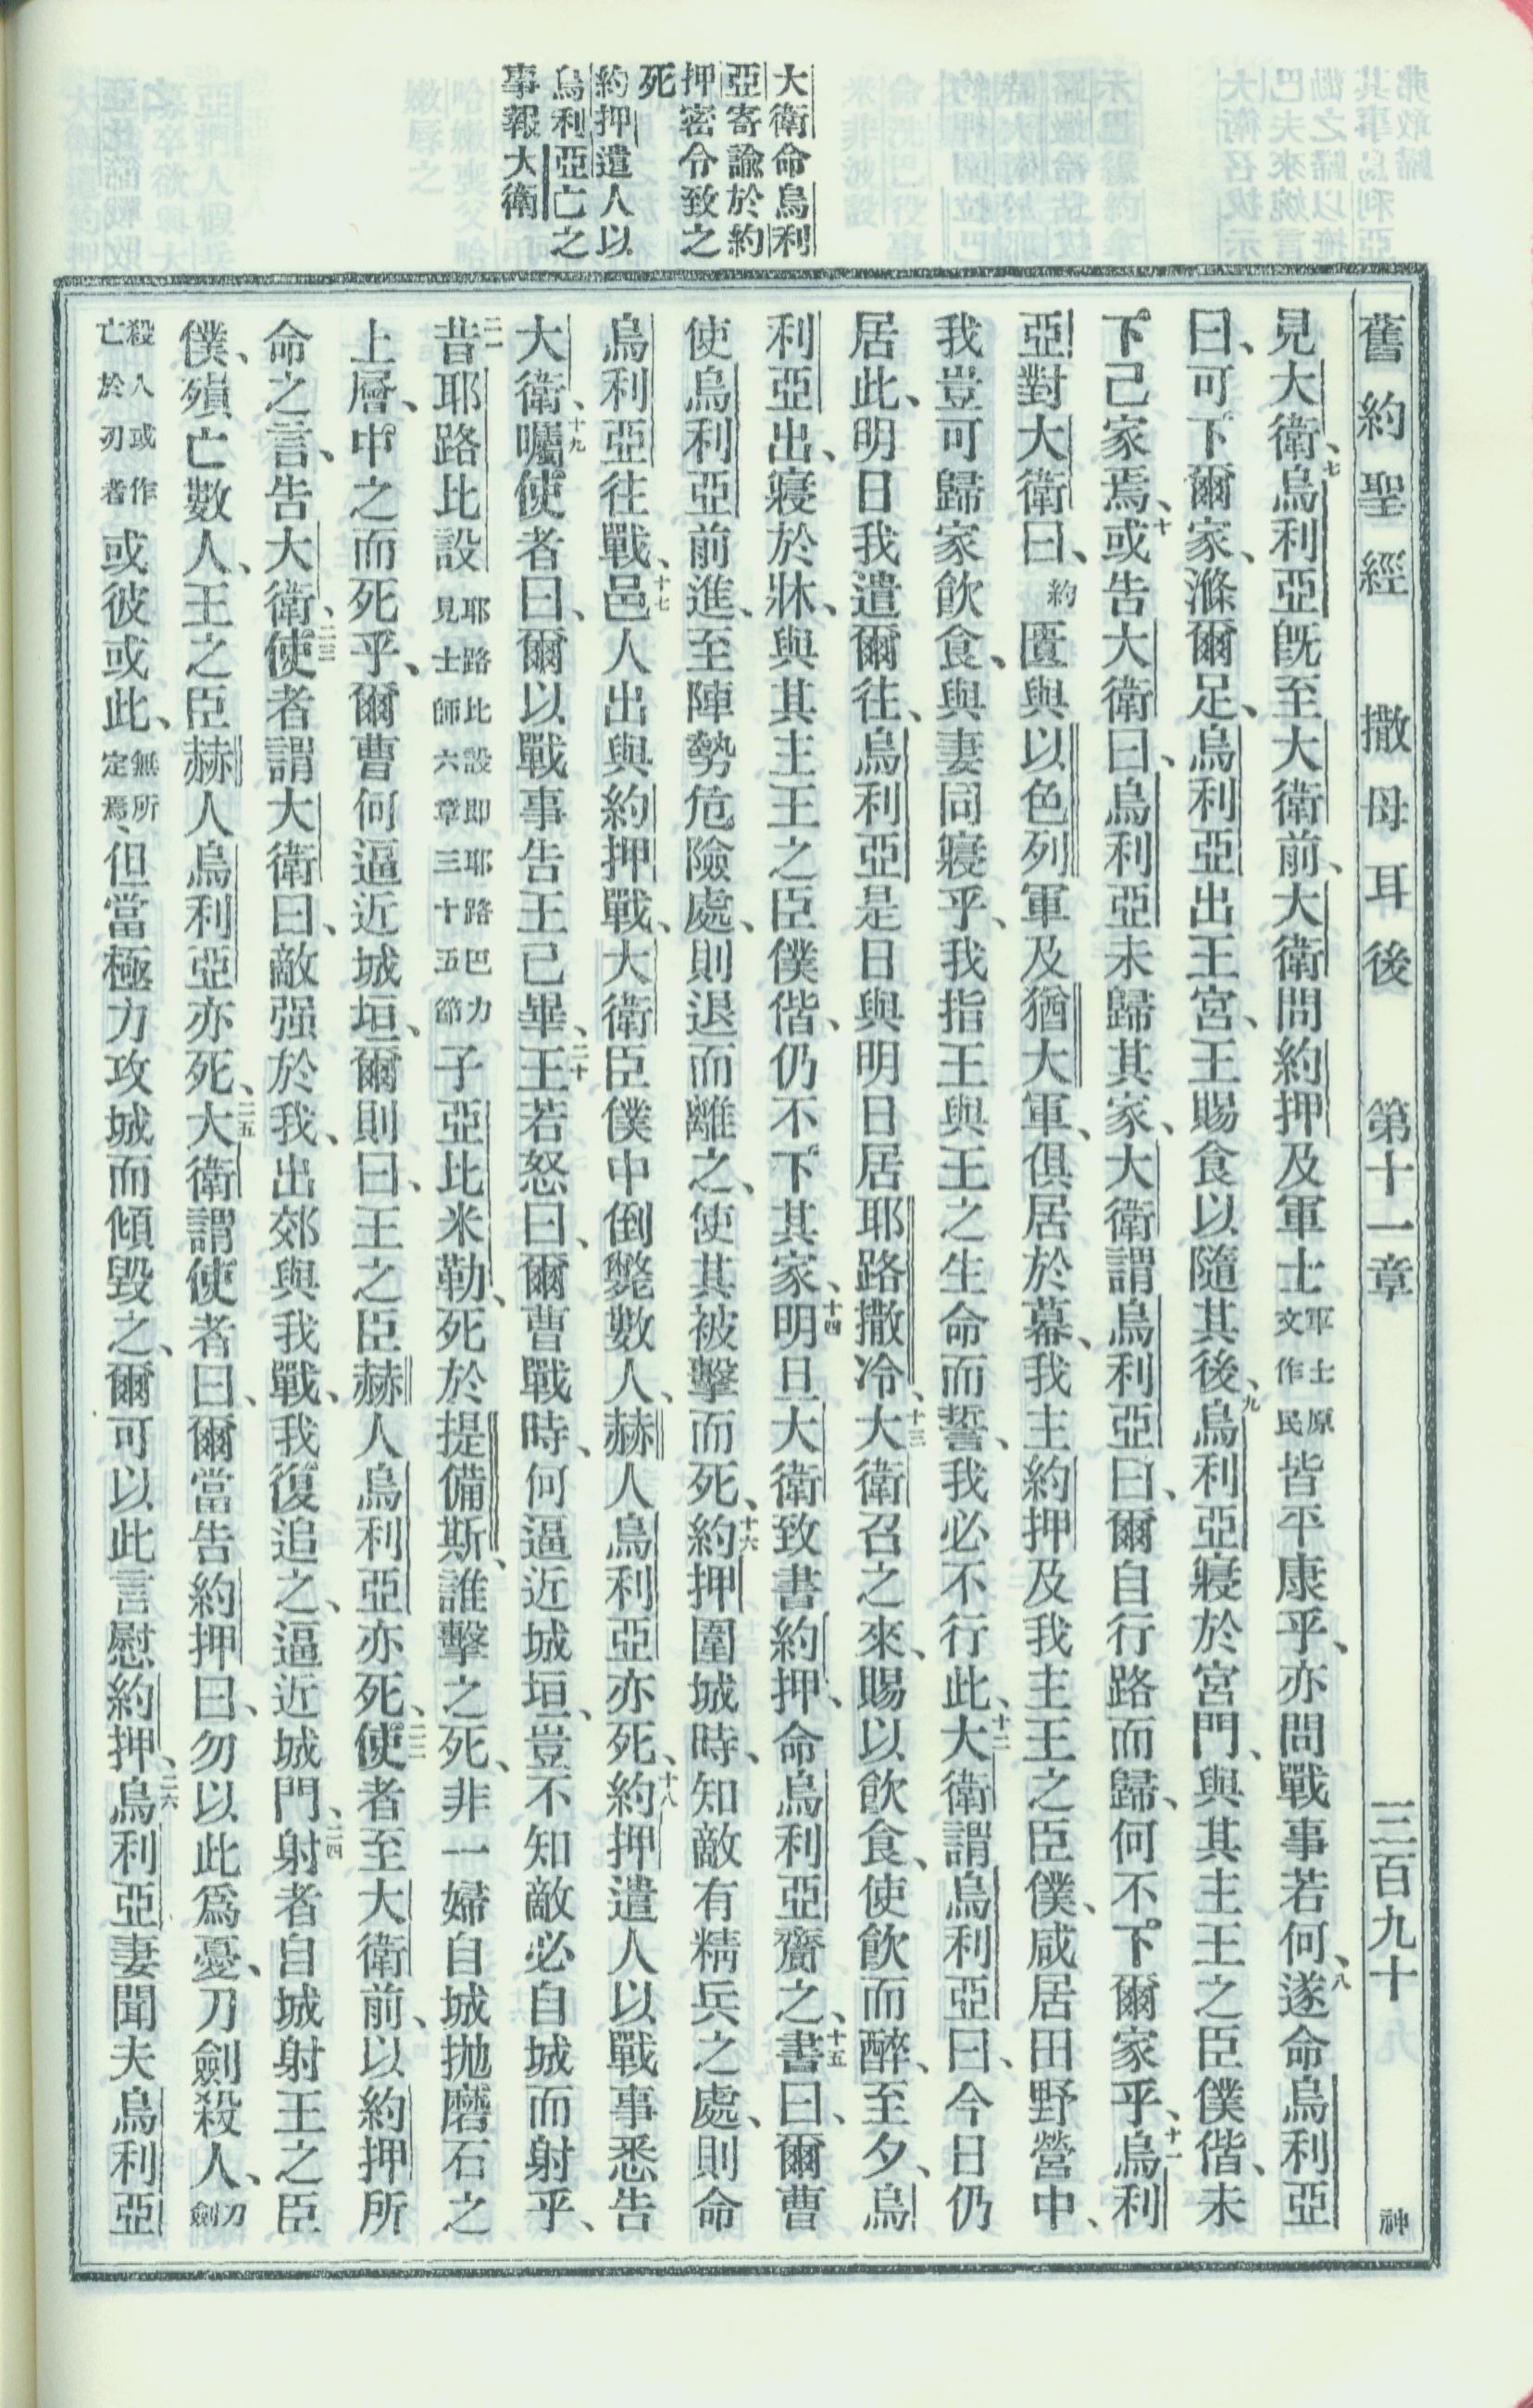 舊約聖經 撒母耳後 第十一章 三百九十 神
大衛命烏利
亞寄諭於約
押密令致之
死
約押遣人以
烏利亞亡之
事報大衛
見大衛、七烏利亞旣至大衛前、大衛問約押及軍士軍士原文作民皆平康乎、亦問戰事若何、八遂命烏利亞
曰、可下爾家、滌爾足、烏利亞出王宮、王賜食以隨其後、九烏利亞寢於宮門、與其主王之臣僕偕、未
下己家焉、十或告大衛曰、烏利亞未歸其家、大衛謂烏利亞曰、爾自行路而歸、何不下爾家乎、十一烏利
亞對大衛曰、約匱與以色列軍及猶大軍、俱居於幕、我主約押及我主王之臣僕、咸居田野營中、
我豈可歸家飲食、與妻同寢乎、我指王與王之生命而誓、我必不行此、十二大衛謂烏利亞曰、今日仍
居此、明日我遣爾往、烏利亞是日與明日居耶路撒冷、十三大衛召之來、賜以飲食、使飲而醉、至夕、烏
利亞出、寢於牀、與其主王之臣僕偕、仍不下其家、十四明旦大衛致書約押、命烏利亞齎之、十五書曰、爾曹
使烏利亞前進、至陣勢危險處、則退而離之、使其被擊而死、十六約押圍城時、知敵有精兵之處、則命
烏利亞往戰、十七邑人出與約押戰、大衛臣僕中倒斃數人、赫人烏利亞亦死、十八約押遣人以戰事悉告
大衛、十九囑使者曰、爾以戰事告王已畢、二十王若怒曰、爾曹戰時、何逼近城垣、豈不知敵必自城而射乎、
二一昔耶路比設耶路比設即耶路巴力見士師六章三十五節子亞比米勒、死於提備斯、誰擊之死、非一婦自城抛磨石之
上層、中之而死乎、爾曹何逼近城垣、爾則曰、王之臣赫人烏利亞亦死、二二使者至大衛前、以約押所
命之言、告大衛、二三使者謂大衛曰、敵强於我、出郊與我戰、我復追之、逼近城門、二四射者自城射王之臣
僕、殞亡數人、王之臣赫人烏利亞亦死、二五大衛謂使者曰、爾當告約押曰、勿以此爲憂、刀劍殺人、刀劍
殺人或作亡於刃者或彼或此、無所定焉、但當極力攻城而傾毀之、爾可以此言慰約押、二六烏利亞妻聞夫烏利亞